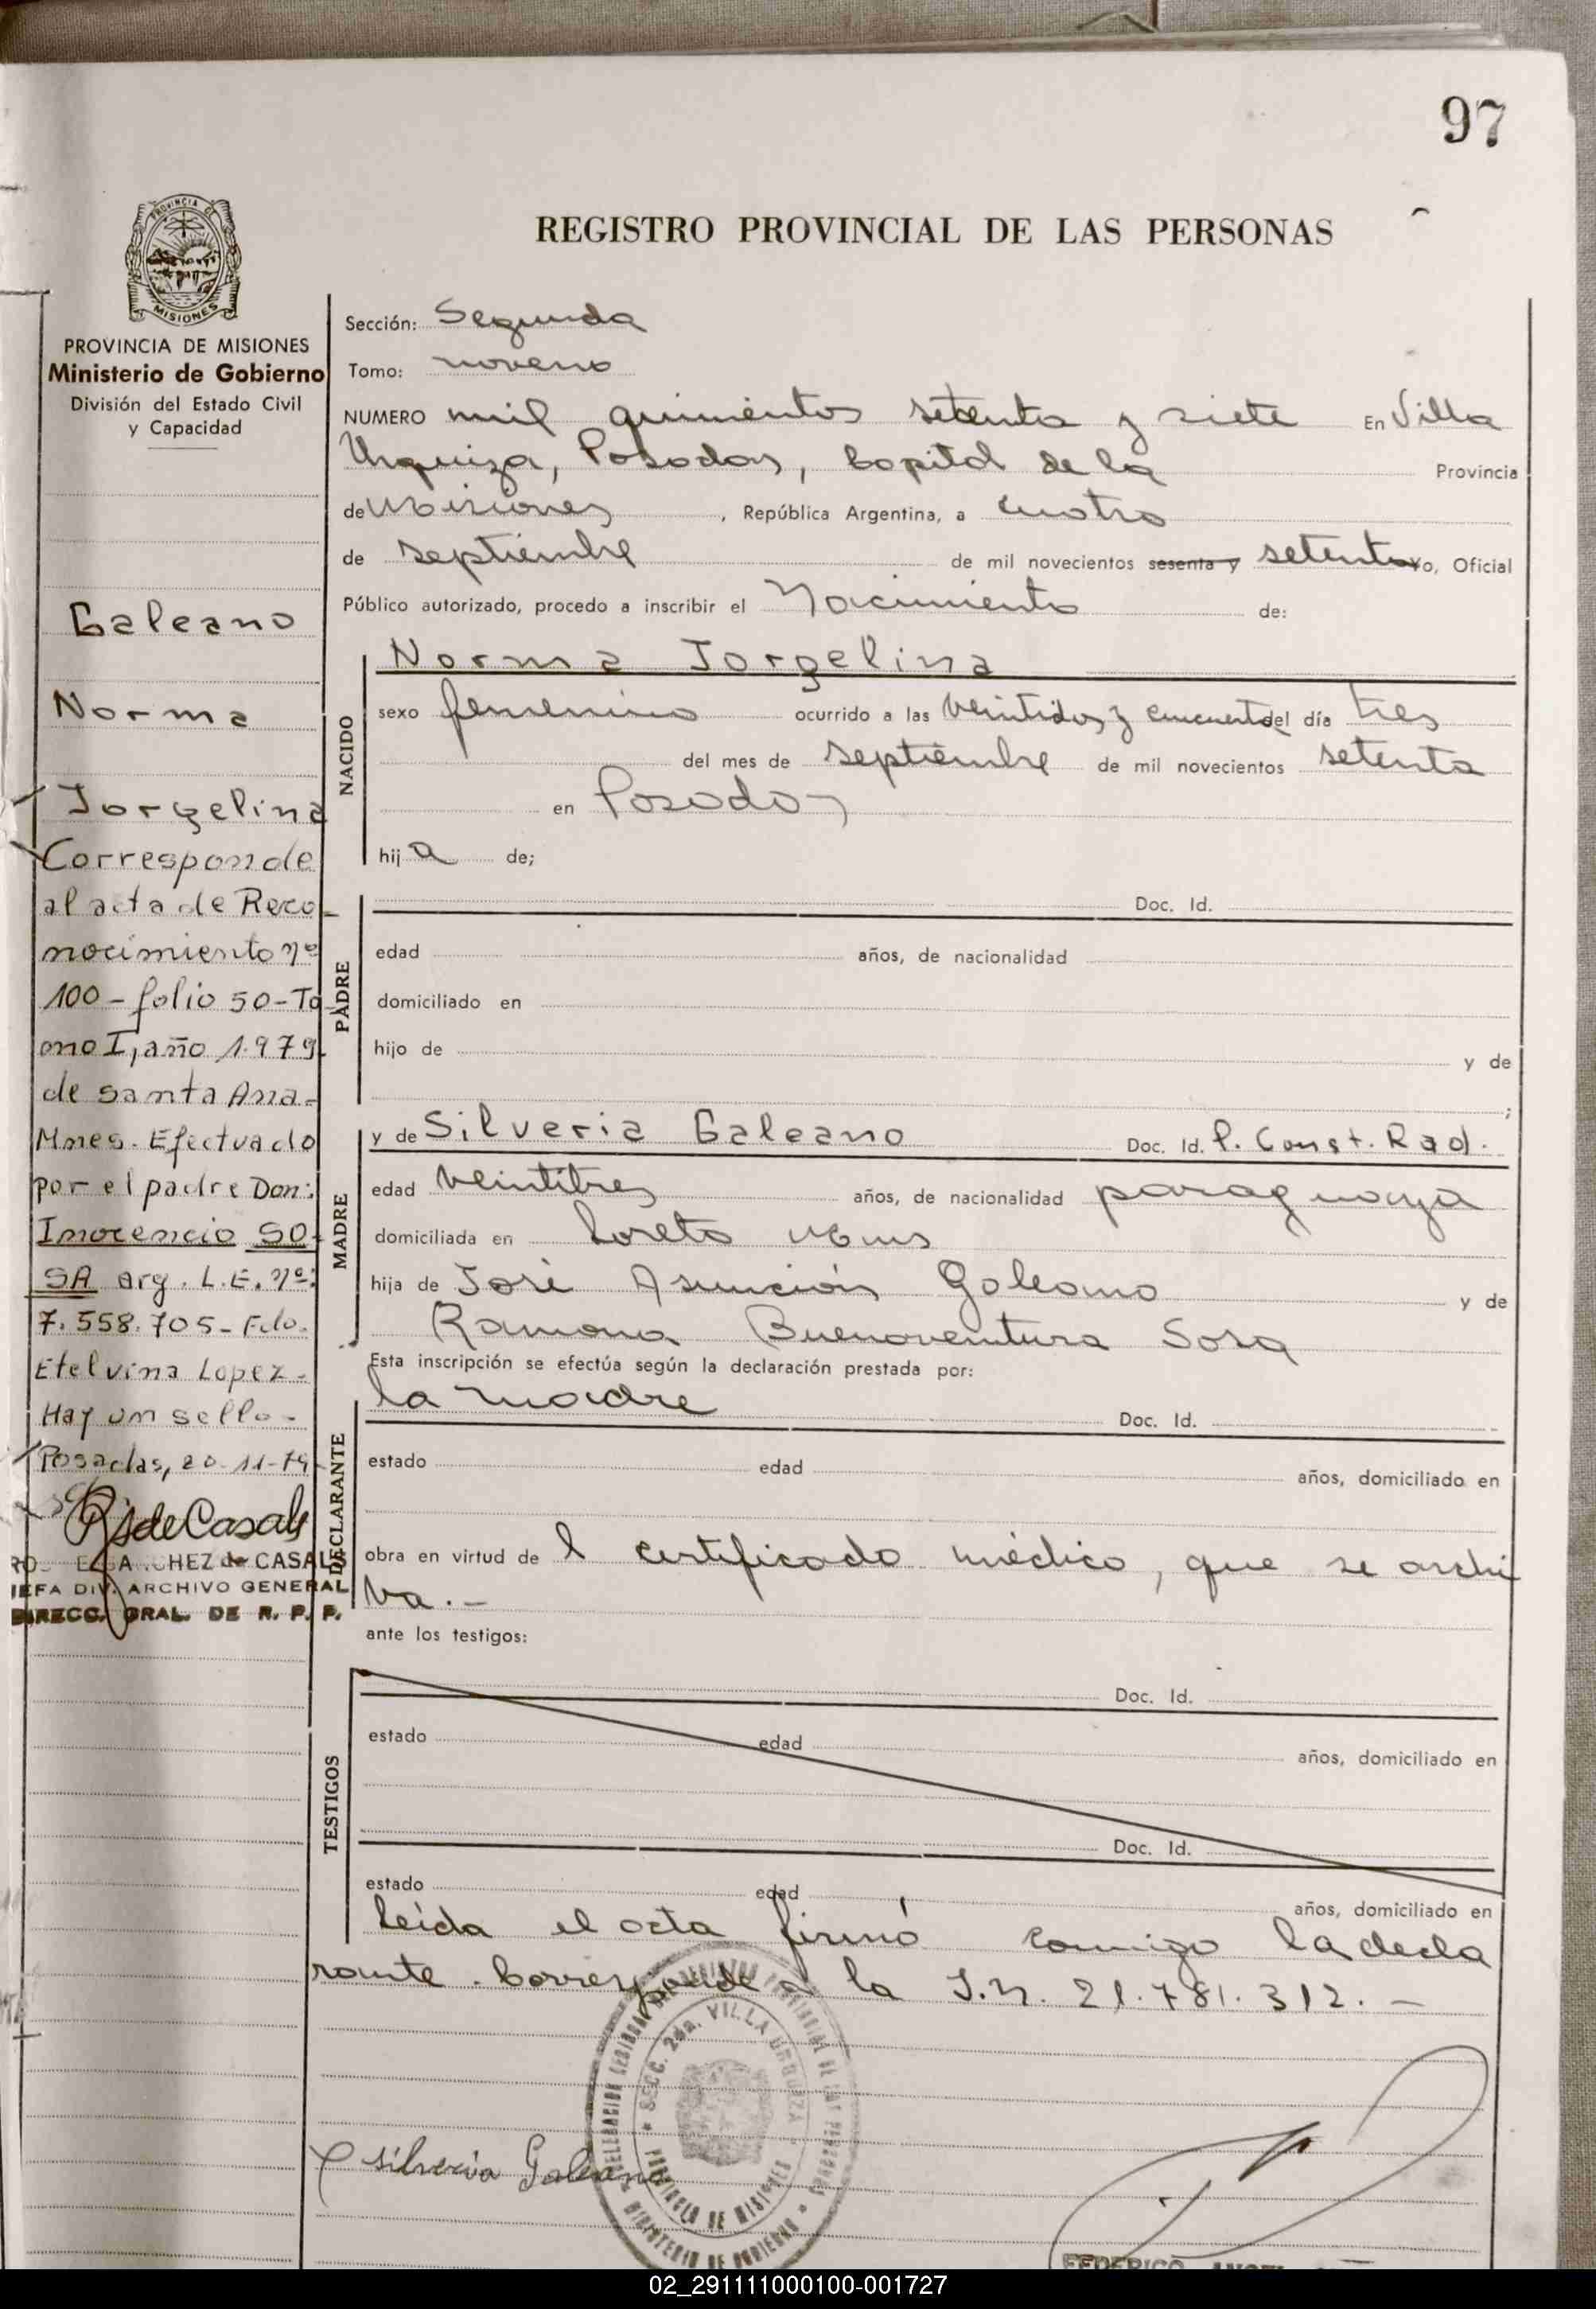 97
PROVINCIA DE
MISIONES
REGISTRO PROVINCIAL DE LAS PERSONAS
PROVINCIA DE MISIONES
Ministerio de Gobierno
División del Estado Civil
y Capacidad
Galeano
Norma
Jorgelina
Corresponde
al acta de Reco
nocimiento nº
100 - folio 50 - To
mo I, año 1979
de Santa Ana -
Mnes. Efectuado
por el padre Don:
Inocencio SO
SA arg. L.E. nº:
7.558.705 - Fdo.
Etelvina Lopez -
Hay un sello -
Posadas, 20-11-79
R S de Casals
CHEZ de CASALS
JEFA DIV. ARCHIVO GENERAL
DIRECC. GRAL. DE R. P. P.
Sección: Segunda
Tomo: noveno
NUMERO mil quinientos setenta y siete En Villa
Urquiza, Posadas, Capital de la Provincia
de Misiones, República Argentina, a cuatro
de septiembre de mil novecientos sesenta y setenta Yo, Oficial
Público autorizado, procedo a inscribir el Nacimiento de:
NACIDO
Norma Jorgelina
sexo femenino ocurrido a las veintidos y cincuenta del día tres
del mes de septiembre de mil novecientos setenta
en Posadas
hija de;
PADRE
Doc. Id.
edad años, de nacionalidad
domiciliado en
hijo de y de
;
MADRE
y de Silveria Galeano Doc. Id. P. Const. Rad.
edad veintitres años, de nacionalidad paraguaya
domiciliada en Loreto Mnes
hija de José Asunción Galeano y de
Ramona Buenaventura Sosa
Esta inscripción se efectúa según la declaración prestada por:
DECLARANTE
la madre Doc. Id.
estado edad años, domiciliado en
obra en virtud de l certificado médico, que se archi
va.-
ante los testigos:
TESTIGOS
Doc. Id.
estado edad años, domiciliado en
Doc. Id.
estado edad años, domiciliado en
Leída el acta firmó conmigo la decla
rante. Corresponde a la I.N. 21.781.312. -
SECC. 2da. VILLA URQUIZA
PROVINCIA DE MISIONES
MINISTERIO DE GOBIERNO
Silveria Galeano
FEDERICO
02_291111000100-001727